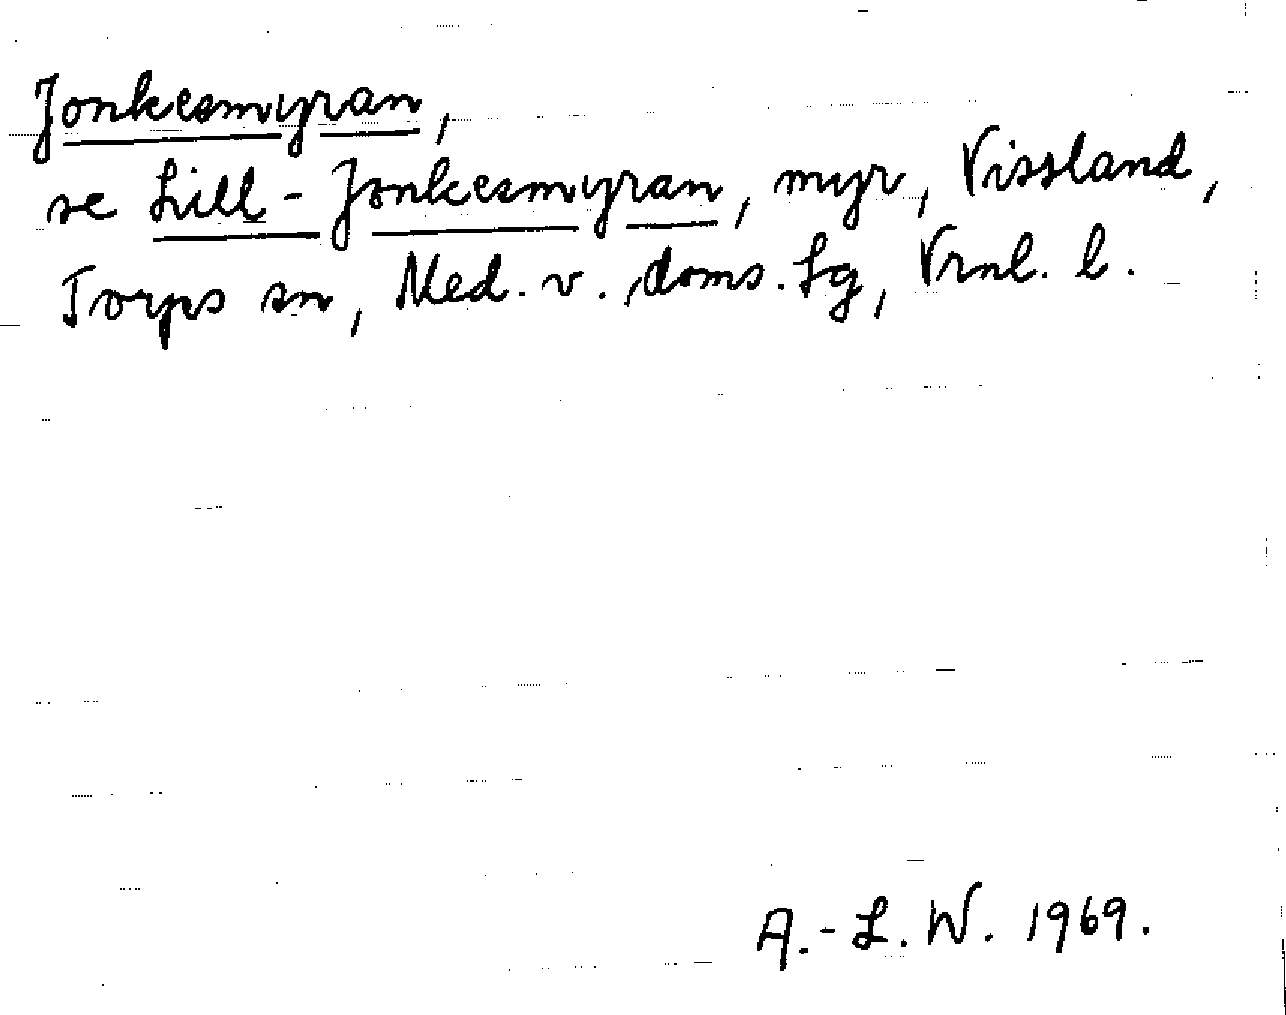 Jonkesmyran,
se Lill-Jonkesmyran, myr, Vissland,
Torps sn, Med. v. doms. lg, Vrnl. l.
A.-L. W. 1969.